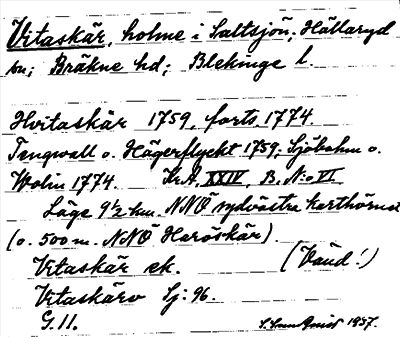 Vitaskär, holme i Saltsjön; Hällaryd
sn; Bräkne hd; Blekinge l.
Hvitaskär 1759, forts. 1774.
Tengwall o. Hägerflyckt 1759; Sjöbohm o.
Wolin 1774. Kr.A. XXIV, B. N:o VI
Läge 9½ km. NNÖ sydvästra karthörnet
(o. 500 m. NNÖ Haröskär).
Vitaskär ek. (Vänd!)
Vitaskärv Sj: 96.
G. 11. 1937.